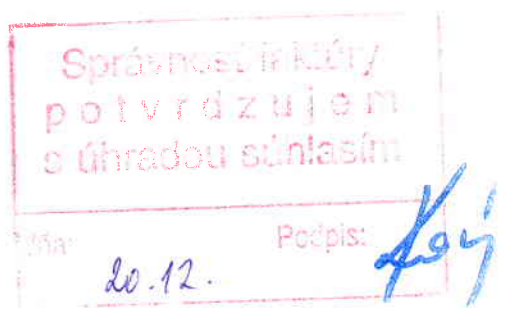 Správnosť faktúry
potvrdzujem
s úhradou súhlasím
Dňa: Podpis:
20.12.